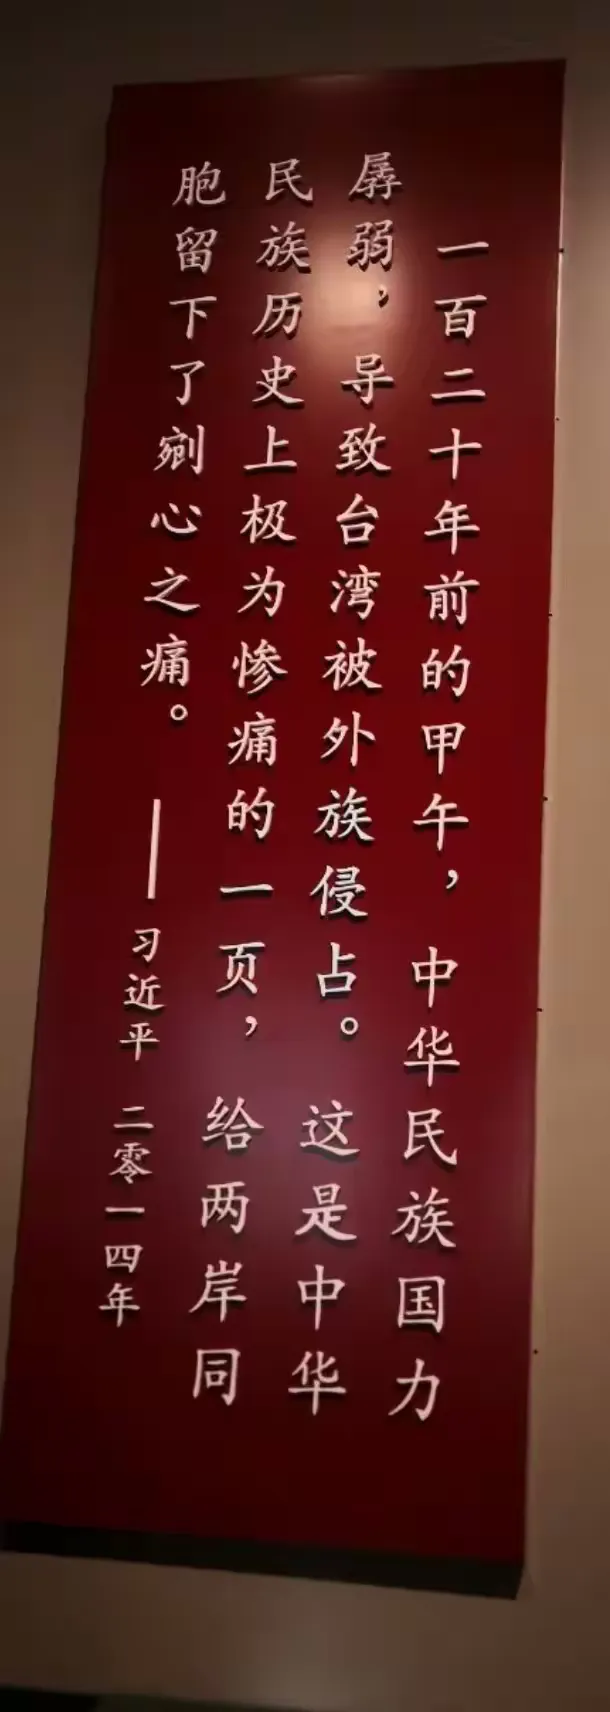 一百二十年前的甲午，中华民族国力
孱弱，导致台湾被外族侵占。这是中华
民族历史上极为惨痛的一页，给两岸同
胞留下了剜心之痛。
——习近平 二零一四年